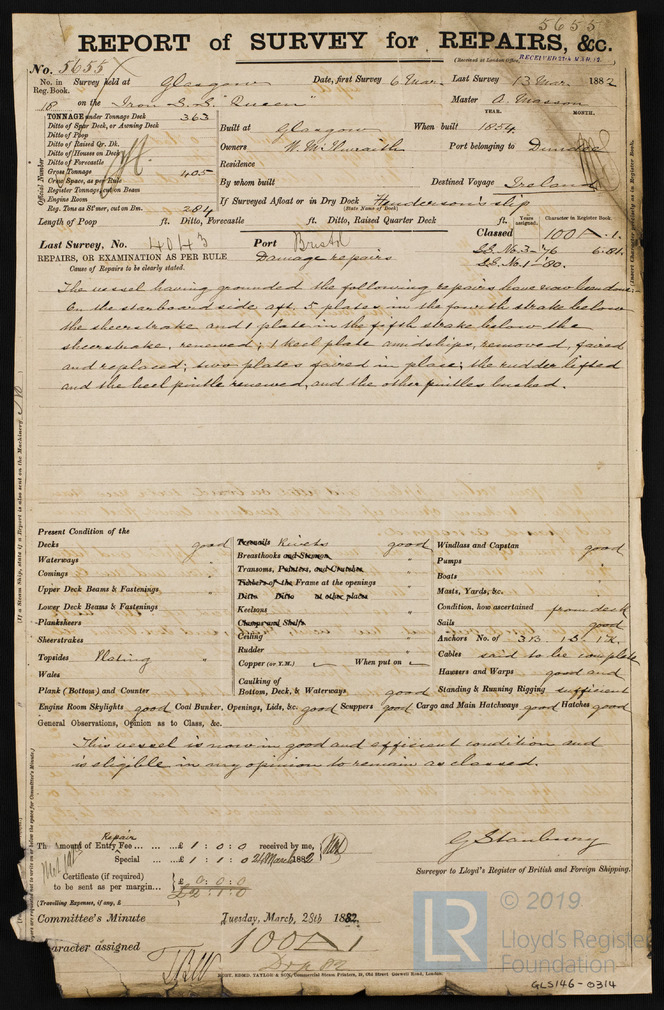 5655
REPORT of SURVEY for REPAIRS, &c.
(Received at London Office, RECEIVED 27th MAR. 82.
No. 5655
No. in Reg. Book. Survey held at Glasgow Date, first Survey 6 Mar. Last Survey 13 Mar. 1882
18 on the Iron S.S. "Queen" Master A. Masson
TONNAGE under Tonnage Deck 363
YEAR. MONTH.
Ditto of Spar Deck, or Awning Deck
Built at Glasgow When built 1854
Ditto of Poop
Ditto of Raised Qr. Dk.
Owners W. McIlwraith Port belonging to Dundee
Ditto of Houses on Deck
Ditto of Forecastle
Residence
Gross Tonnage 405
Crew Space, as per Rule
By whom built Destined Voyage Ireland
Register Tonnage, cut on Beam
Engine Room
If Surveyed Afloat or in Dry Dock Henderson's slip
(State Name of Dock)
Reg. Tons as St'mer, cut on Bm. 284
Official Number
Length of Poop ft. Ditto, Forecastle ft. Ditto, Raised Quarter Deck ft.
Years assigned. Character in Register Book.
Classed 100A.1.
Last Survey, No. 4043 Port Bristol
S.S. No. 3-'76 6.81.
REPAIRS, OR EXAMINATION AS PER RULE Damage repairs
S.S. No. 1-'80.
Cause of Repairs to be clearly stated.
The vessel having grounded the following repairs have now been done:
On the starboard side aft, 5 plates in the fourth strake below
the sheerstrake and 1 plate in the fifth strake below the
sheerstrake, renewed; 1 keel plate amidships, removed, faired
and replaced; two plates faired in place; the rudder lifted
and the heel pintle renewed, and the other pintles bushed.
Present Condition of the
Decks good
Waterways "
Comings "
Upper Deck Beams & Fastenings "
Lower Deck Beams & Fastenings "
Planksheers "
Sheerstrakes "
Topsides Plating "
Wales
Plank (Bottom) and Counter
Treenails Rivets good
Breasthooks and Stemson "
Transoms, Pointers, and Crutches "
Timbers of the Frame at the openings "
Ditto Ditto at other places "
Keelsons "
Clamps and Shelfs
Ceiling "
Rudder "
Copper (or Y.M.) When put on
Caulking of
Bottom, Deck, & Waterways good
Windlass and Capstan good
Pumps "
Boats "
Masts, Yards, &c. "
Condition, how ascertained from deck
Sails good
Anchors No. of 3B. 1S. 1K.
Cables said to be complete
Hawsers and Warps good and
Standing & Running Rigging sufficient
Engine Room Skylights good Coal Bunker, Openings, Lids, &c. good Scuppers good Cargo and Main Hatchways good Hatches good
General Observations, Opinion as to Class, &c.
This vessel is now in good and efficient condition and
is eligible in my opinion to remain as classed.
Repair
The Amount of Entry Fee ... ... ...£ 1 : 0 : 0 received by me,
Special ... ...£ 1 : 1 : 0 24 March 1882
Certificate (if required)
to be sent as per margin... £ 0 : 0 : 0
£2 : 1 : 0
(Travelling Expenses, if any, £ )
G Stanbury
Surveyor to Lloyd's Register of British and Foreign Shipping.
Committee's Minute Tuesday, March, 28th 1882.
Character assigned 100A 1
PORT. EDMD. TAYLOR & SON, Commercial Steam Printers, 19, Old Street Goswell Road, London.
© 2019
LR
Lloyd's Register
Foundation
GLS146-0314